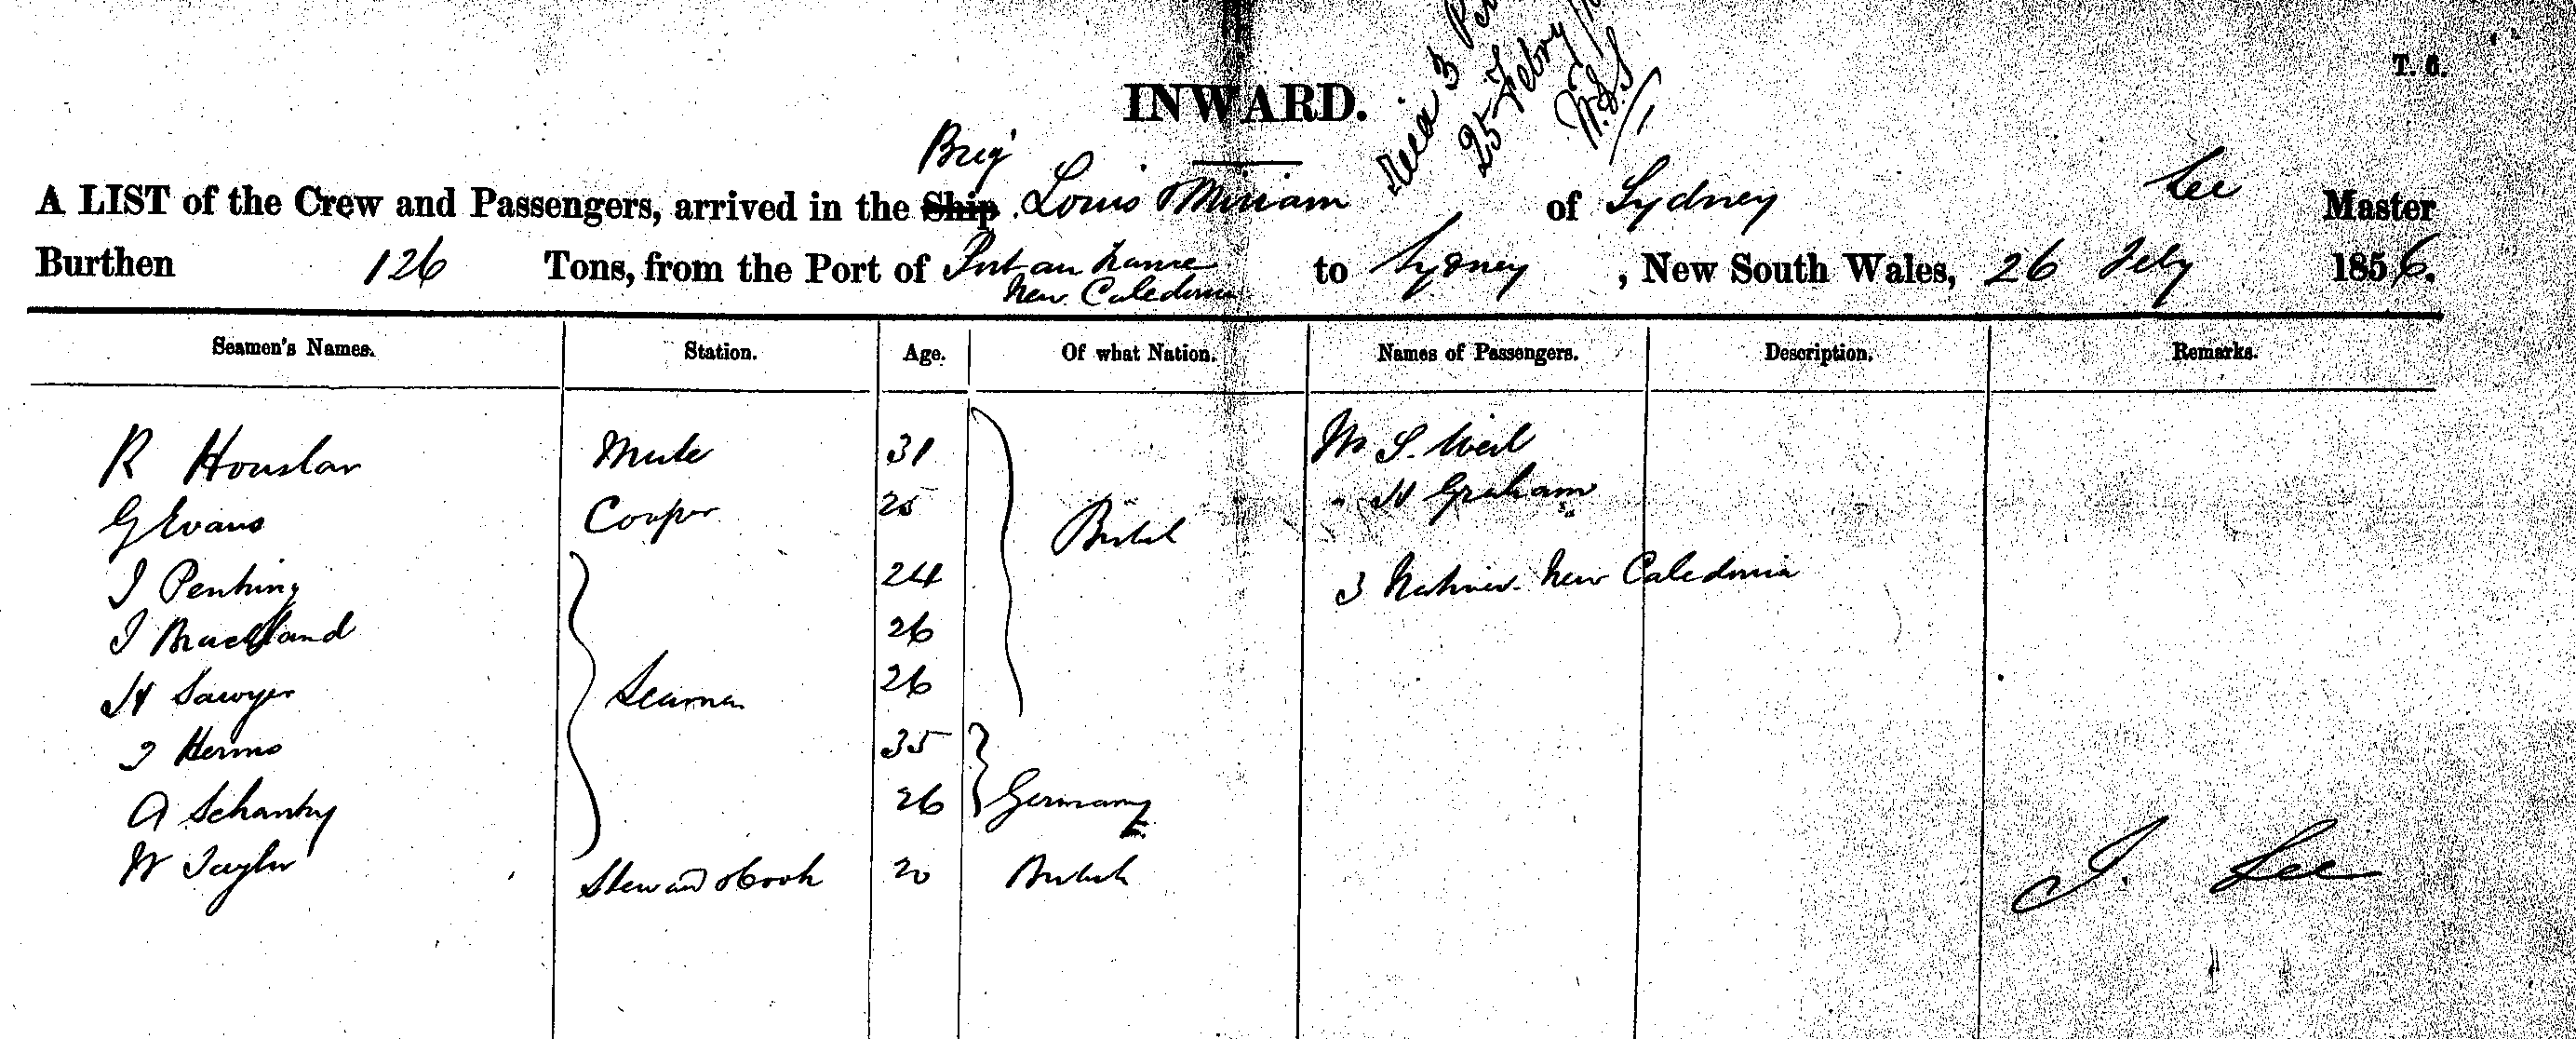 T. 6.
3
25 Febry
INWARD.
Brig
A LIST of the Crew and Passengers, arrived in the Ship Louis & Miriam of Sydney Lee Master
Burthen 126 Tons, from the Port of Port au France to Sydney, New South Wales, 26 Feby 1856.
New Caledonia
Seamen's Names. Station. Age. Of what Nation. Names of Passengers. Description. Remarks.
R Houslar Mate 31 Mr S. Weil
G Evans Cooper 25 British " H Graham
J 24 3 Natives New Caledonia
J 26
H Sawyer Seamen 26
J Herms 35
A 26 Germany
W Taylor Steward & Cook 20 British
J. Lee